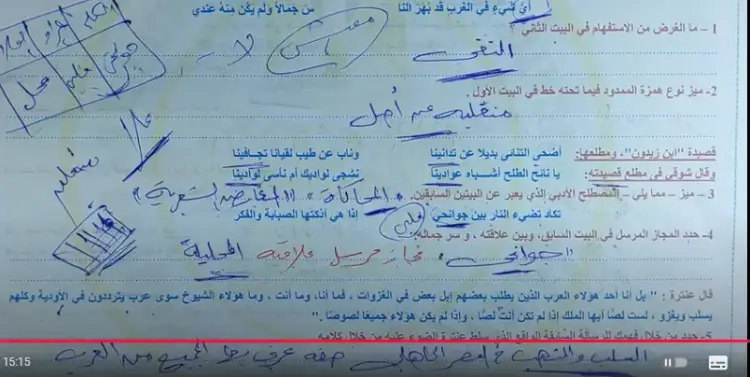 أي شيء في الغرب قد بهر النا من جمالا ولم يكن منه عندي
1 - ما الغرض من الاستفهام في البيت الثاني ؟
النفى
2- ميز نوع همزة الممدود فيما تحته خط في البيت الأول .
منقلبة عن أصل
قصيدة "ابن زيدون"، ومطلعها: أضحى التنائي بديلا عن تدانينا وناب عن طيب لقيانا تجافينا
وقال شوقي في مطلع قصيدته: يا نائح الطلح أشباه عوادينا نشجى لواديك أم نأسى لوادينا
3 - ميز – مما يلي – المصطلح الأدبي الذي يعبر عن البيتين السابقين.
"المحاكاة" "المعارض الشعرية"
تكاد تضيء النار بين جوانحي إذا هي أذكتها الصبابة والفكر
قلبي
4- حدد المجاز المرسل في البيت السابق، وبين علاقته ، وسر جماله.
"جوانحي" مجاز مرسل علاقته المحلية
قال عنترة : " بل أنا أحد هؤلاء العرب الذين يطلب بعضهم إبل بعض في الغزوات، فما أنا، وما أنت ، وما هؤلاء الشيوخ سوى عرب يترددون في الأودية وكلهم
يسلب ويغزو ، لست لصا أيها الملك إذا لم تكن أنت لصا ، وإذا لم يكن هؤلاء جميعا لصوصا .
5- حدد من خلال فهمك للرسالة السابقة الواقع الذي سلط عنترة الضوء عليه من خلال كلامه
السلب والنهب العصر الجاهلي صفة عرف بها الجميع من العرب
15:15